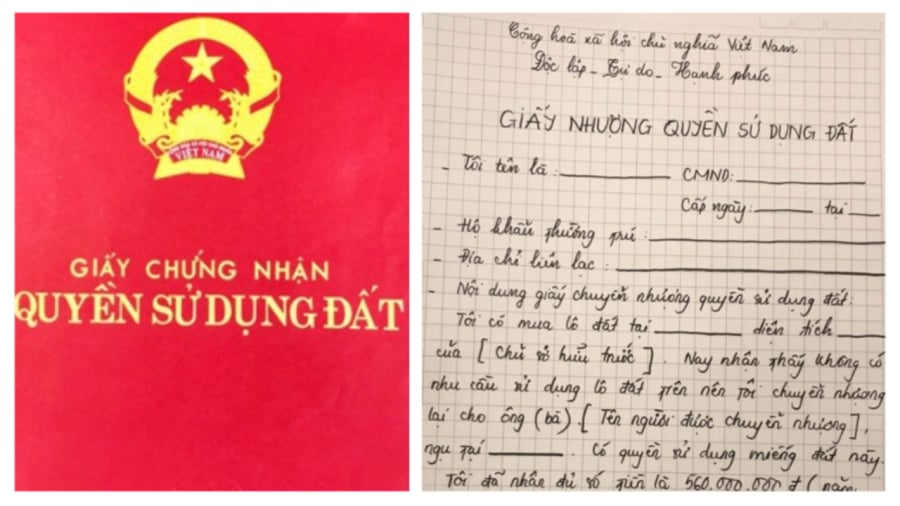 VIỆT NAM
GIẤY CHỨNG NHẬN
QUYỀN SỬ DỤNG ĐẤT
Cộng hoà xã hội chủ nghĩa Việt Nam
Độc lập - Tự do - Hạnh phúc
GIẤY NHƯỢNG QUYỀN SỬ DỤNG ĐẤT
- Tôi tên là : CMND:
Cấp ngày: tại
- Hộ khẩu thường trú :
- Địa chỉ liên lạc :
- Nội dung giấy chuyển nhượng quyền sử dụng đất:
Tôi có mua lô đất tại diện tích
của [ Chủ sở hữu trước ]. Nay nhận thấy không có
nhu cầu sử dụng lô đất trên nên tôi chuyển nhượng
lại cho ông (bà) [ Tên người được chuyển nhượng ],
ngụ tại . Có quyền sử dụng miếng đất này.
Tôi đã nhận đủ số tiền là 560.000.000 đ ( năm